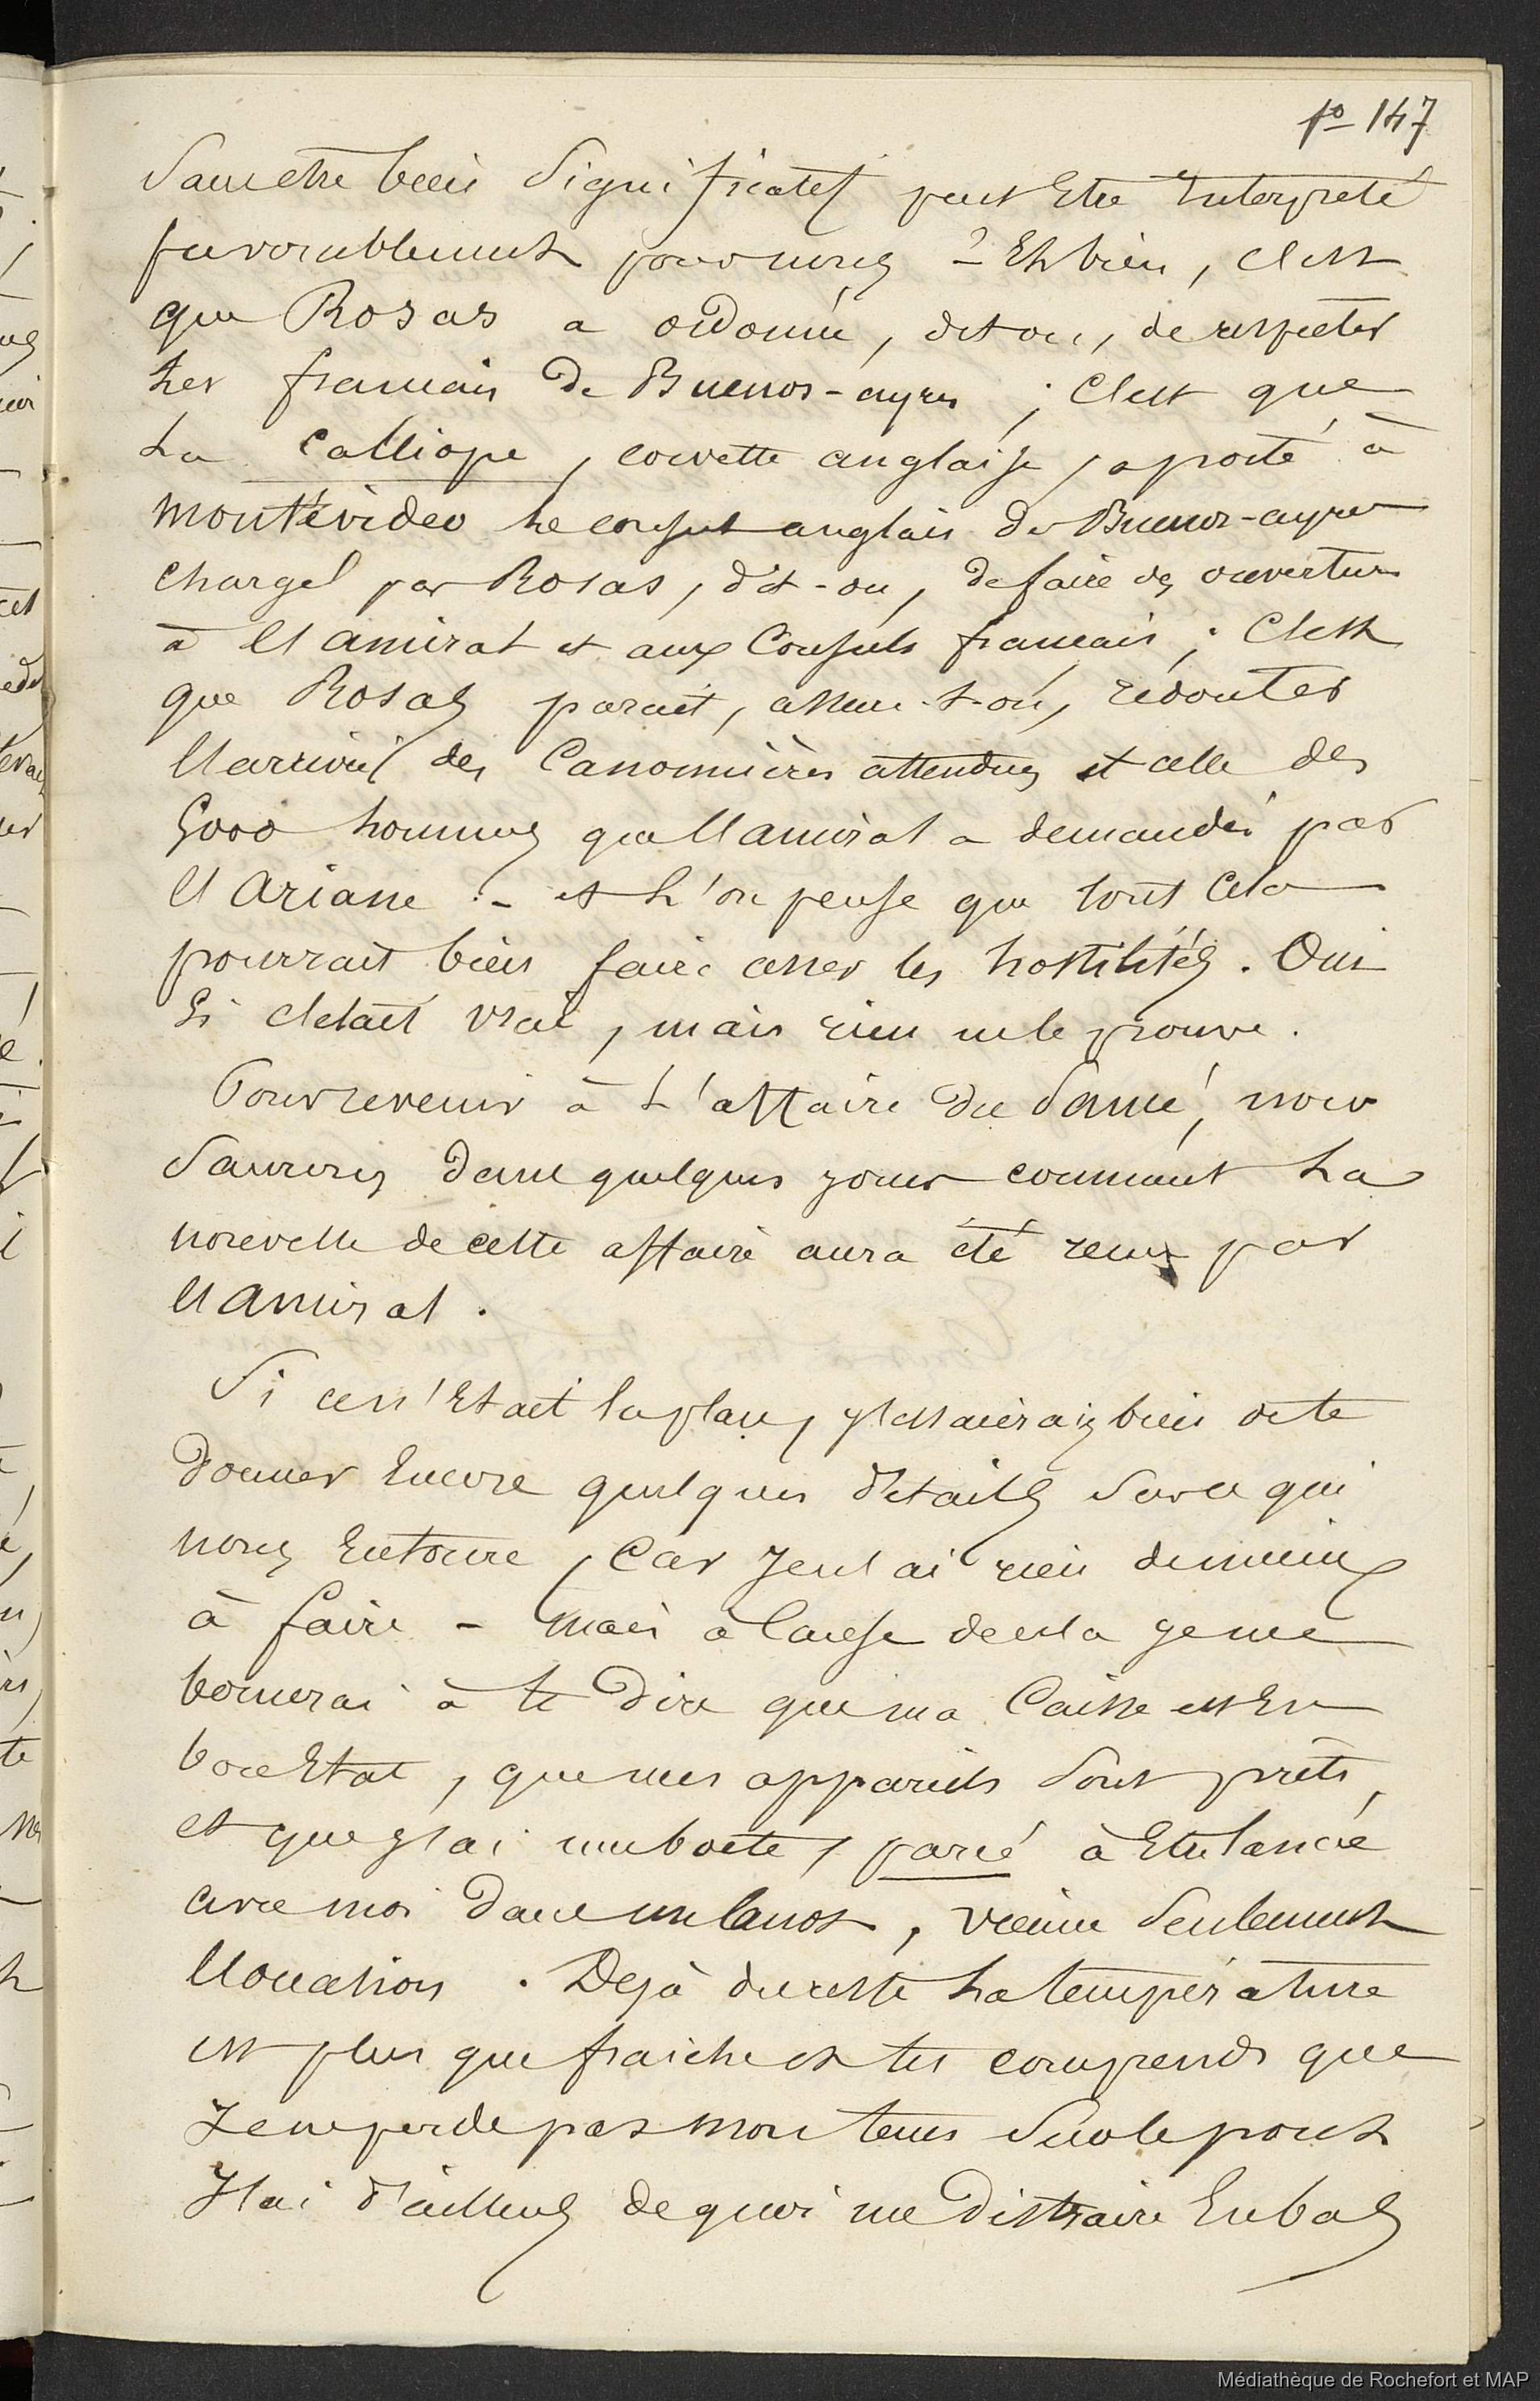 fo 147
Sans être bien significatif peut Etre Interprété
favorablement pour nous ? - Eh bien, c'est
que Rosas a ordonné, dit on, de respecter
Les francais de Buenos-ayres ; C'est que
La Calliope, corvette anglaise, a porté à
Montévideo Le consul anglais de Buenos-ayres
chargé par Rosas, dit-on, de faire des ouvertures
à l'amiral et aux Consuls francais ; C'est
que Rosas parait, assure-t-on, redouter
l'arrivée des Canonnières attendues et celle des
5000 hommes que l'amiral a demandés par
l'Ariane - et L'on pense que tout Cela
pourrait bien faire cesser les hostilités. Oui
Si c'etait vrai, mais rien ne le prouve.
Pour revenir à L'affaire du Sanné, nous
Saurons dans quelques jours comment La
nouvelle de cette affaire aura été reçue par
l'Amiral.
Si ce n'Etait la place, j'essaierais bien de te
donner Encore quelques détails Sur ce qui
nous Entoure, Car Je n'ai rien de mieux
à faire - Mais à Cause de cela je me
bornerai à te dire que ma Caisse est En
bon Etat, que mes appareils Sont prêts,
et que j'ai une boete, parée à Etre lancée
avec moi dans un canot, vienne Seulement
l'occasion. Dejà du reste La température
est plus que fraiche et tu comprends que
Je ne perde pas mon tems Sur le pont
J'ai d'ailleurs de quoi me distraire En bas
Médiathèque de Rochefort et MAP